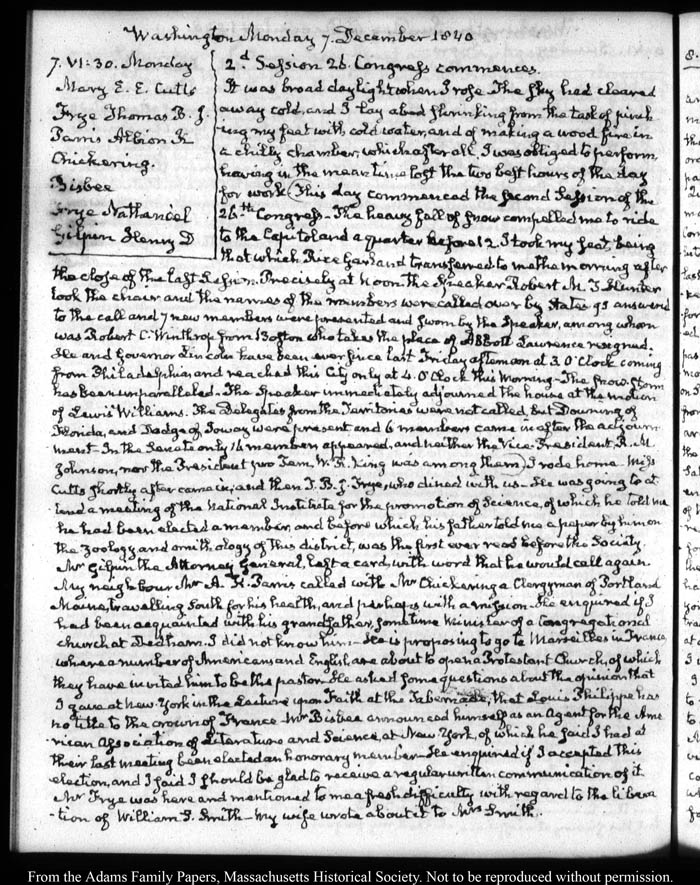 Washington Monday 7. December 1840
7. VI:30. Monday
Mary E. E. Cutts
Frye Thomas B. J.
Parris Albion K
Chickering.
Bisbee
Frye Nathaniel
Gilpin Henry D
2.d Session 26. Congress commences.
It was broad daylight when I rose. The sky had cleared
away cold, and I lay abed shrinking from the task of
my feet with cold water, and of making a wood fire in
a chilly chamber, which after all, I was obliged to perform,
having in the mean time lost the two best hours of the day
for work. This day commenced the second Session of the
26.th Congress. The heavy fall of snow compelled me to ride
to the Capitol and a quarter before 12. I took my seat, being
that which Rice Garland transferred to me the morning after
the close of the last Session. Precisely at Noon the Speaker Robert M. T. Hunter
took the chair and the names of the members were called over by States 93 answered
to the call and 7 new members were presented and sworn by the Speaker, among whom
was Robert C. Winthrop from Boston who takes the place of Abbott Lawrence resigned.
He and Governor Lincoln have been ever since last Friday afternoon at 3. O'Clock coming
from Philadelphia and reached this City only at 4. O'Clock this Morning—The snow storm
has been unparalleled. The Speaker immediately adjourned the house at the motion
of Lewis Williams. The Delegates from the Territories were not called, but Downing of
Florida, and Dodge of Ioway were present and 6 members came in after the adjourn-
ment—In the Senate only 16 members appeared, and neither the Vice-President R. M.
Johnson, nor the President pro Tem, W. R. King was among them. I rode home—Miss
Cutts shortly after came in, and then T. B. J. Frye, who dined with us—He was going to at-
tend a meeting of the National Institute for the promotion of Science, of which he told me
he had been elected a member, and before which, his father told me a paper by him on
the zoology and ornithology of this district, was the first ever read before the Society
Mr Gilpin the Attorney General, left a card, with word that he would call again.
My neighbour Mr A. K. Parris called with Mr Chickering a Clergyman of Portland
Maine, travelling South for his health, and perhaps with a mission. He enquired if I
had been acquainted with his grandfather, sometime Minister of a Congregational
church at Dedham. I did not know him—He is proposing to go to Marseilles in France,
where a number of Americans and English, are about to open a Protestant Church, of which
they have invited him to be the pastor. He asked some questions about the opinion that
I gave at New York in the Lecture upon Faith at the Tabernacle, that Louis Philippe has
no title to the crown of France—Mr Bisbee announced himself as an Agent for the Ame-
rican Association of Literature and Science, at New York, of which he said I had at
their last meeting been elected an honorary member—He enquired if I accepted this
election, and I said I should be glad to receive a regular written communication of it
Mr Frye was here and mentioned to me a fresh difficulty with regard to the libera-
-tion of William S. Smith—My wife wrote about it to Mrs Smith.
8.
From the Adams Family Papers, Massachusetts Historical Society. Not to be reproduced without permission.